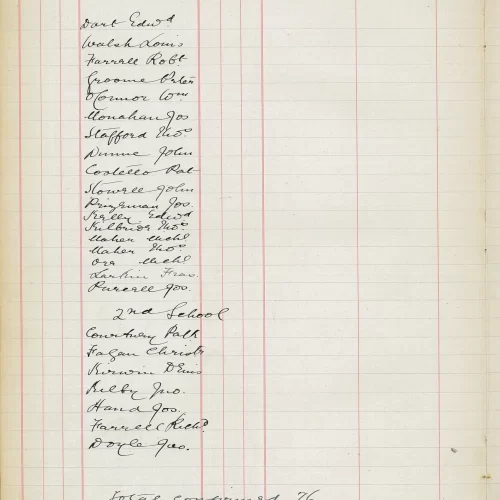 Dart Edwd
Walsh Louis
Farrell Robt
Groome Peter
O'Connor Wm
Monahan Jos
Stafford Thos
Dunne John
Costello Pat
Howell John
Pringeman Jos.
Kelly Edwd
Kilbride Thos
Maher Michl
Maher Thos
Orr Michl
Larkin Fras.
Purcell Jos.
2nd School
Courtney Patk
Fagan Christr
Kirwin Denis
Kilby Jno.
Hand Jos.
Farrell Richd
Doyle Jas.
Total confirmed 76